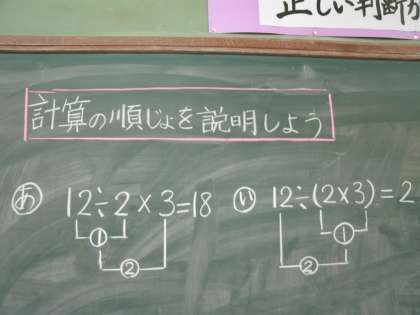 正しい判断が
計算の順じょを説明しよう
あ 12÷2×3=18 い 12÷(2×3)=2
① ①
② ②